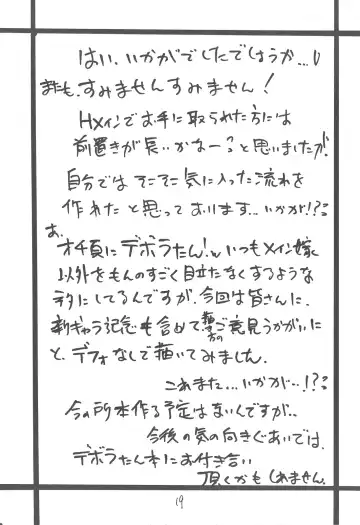 はい、いかがでしたでしょうか…
すみませんすみません!
Hメインでお手に取られた方には
前置きが長いかなーっと思いましたが!
自分ではそこそこ気に入った流れを
作れたと思っております…いかが!?
あ、
オチ頁にデボラたん!w いつもメイン嫁
以外をものすごく目立たなくするような
ラクにしてるんですが、今回は皆さんに、
新キャラ記念も含めてご意見うかがいに
と、デフォなしで描いてみました。
これまた…いかが…!?
今の所本作る予定はないんですが、
今後の気の向きぐあいでは、
デボラたん本にお付き合い
頂くかもしれません。
19